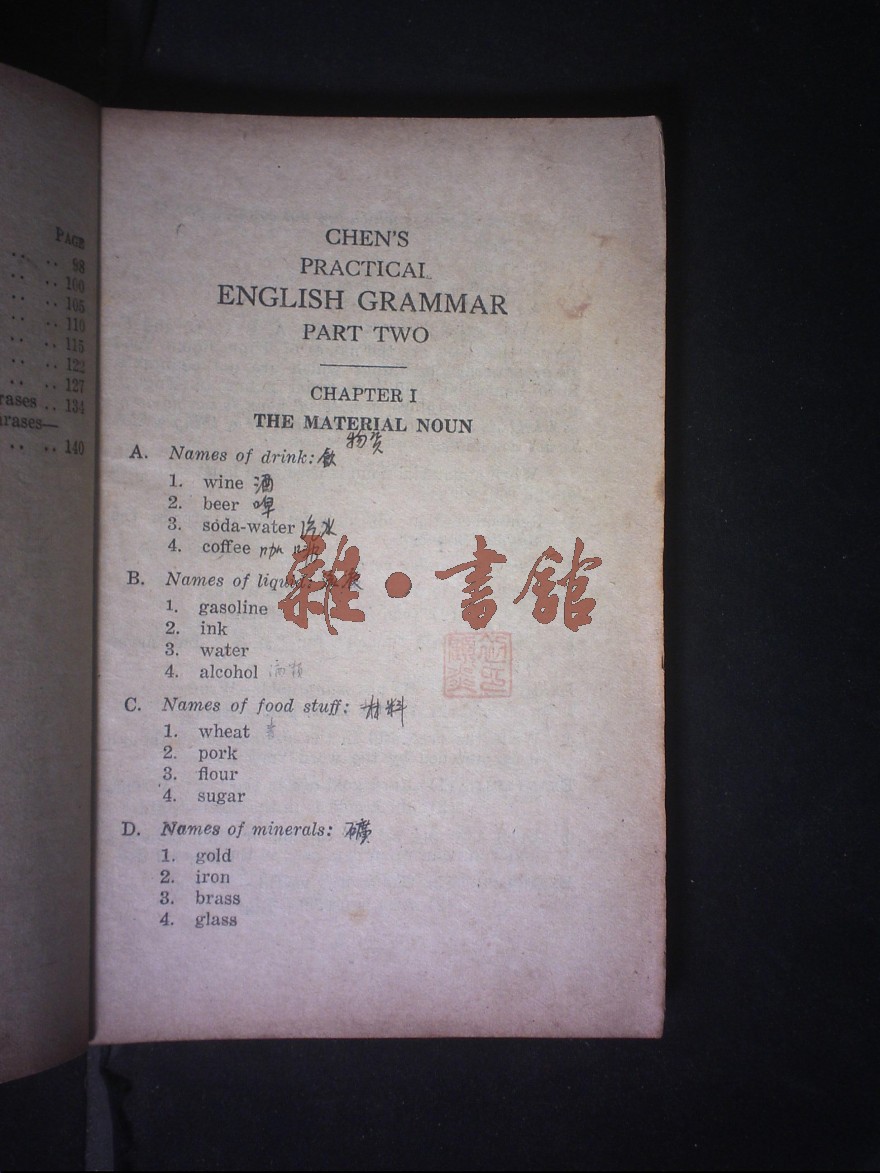 PAGE
98
100
105
110
115
122
127
rases .. 134
hrases—
140
CHEN'S
PRACTICAL
ENGLISH GRAMMAR
PART TWO
CHAPTER I
THE MATERIAL NOUN
物质
A. Names of drink: 飲
1. wine 酒
2. beer 啤
3. soda-water 汽水
4. coffee 咖啡
B. Names of liquid:
1. gasoline
2. ink
3. water
4. alcohol
C. Names of food stuff: 材料
1. wheat
2. pork
3. flour
4. sugar
D. Names of minerals: 礦
1. gold
2. iron
3. brass
4. glass
雜·書館